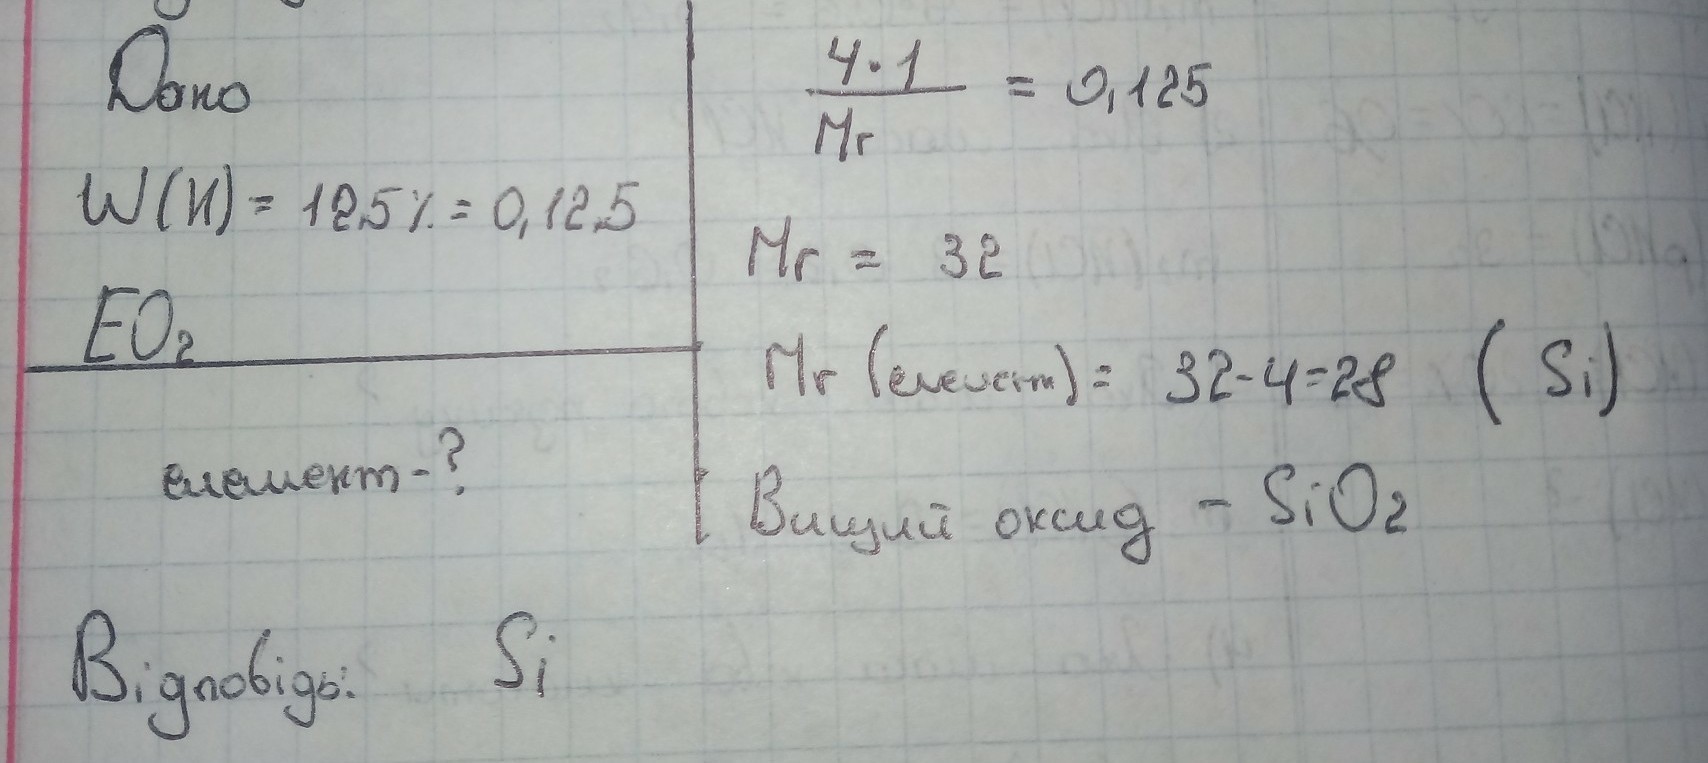 Дано
W(H) = 12,5% = 0,125
EO2
елемент-?
4·1
Mr
= 0,125
Mr = 32
Mr (елемент) = 32-4=28 (Si)
Вищий оксид - SiO2
Відповідь: Si